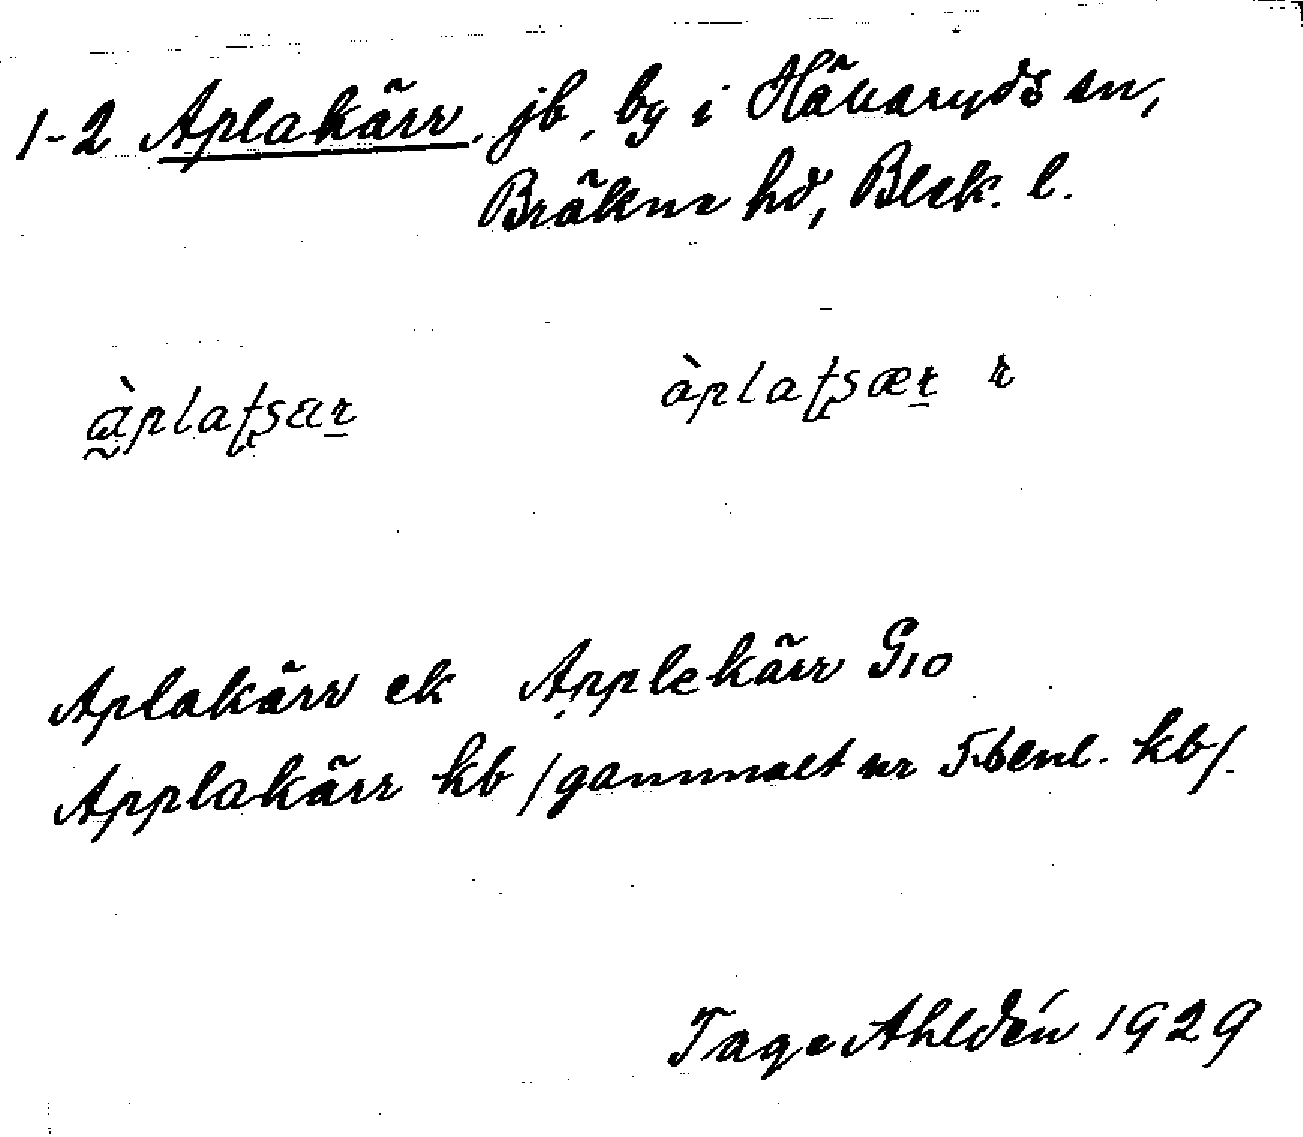 1-2 Aplakärr. jb, by i Hävaryds sn,
Bräkne hd, Blek. l.
àplaʈʂaɽ àplaʈʂæɽ r
Aplakärr ek Applekärr G10
Applakärr kb /gammalt nr enl. kb/.
Tage Ahldén 1929